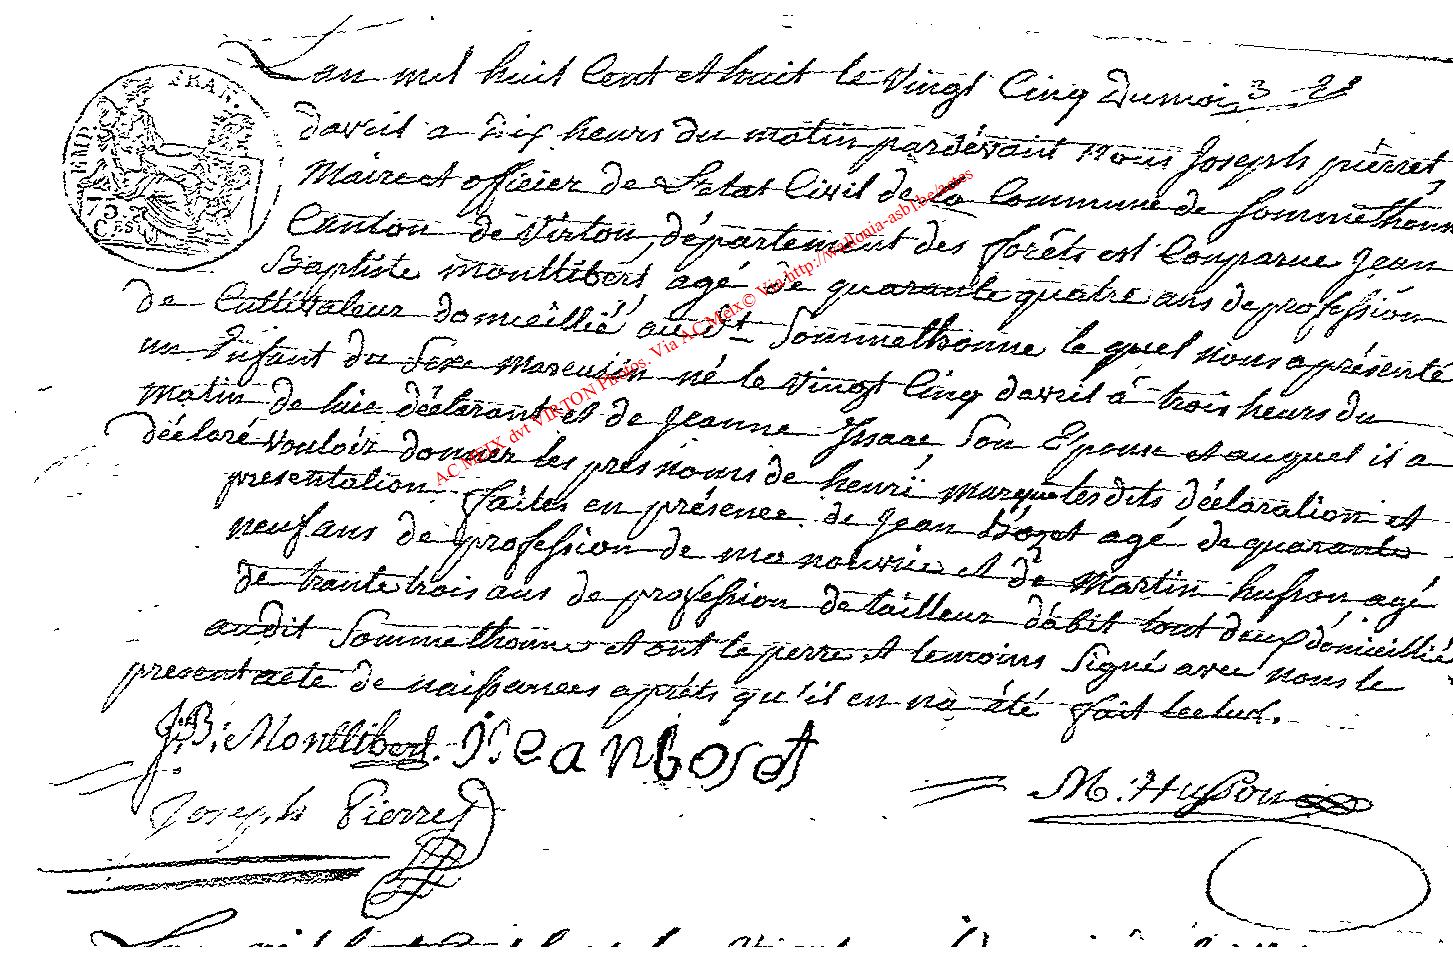 Lan mil huit Cent et huit le Vingt Cinq Dumois
davril a Dix heurs du matin pardevant Nous Joseph pierret
Maire et officier de Letat Civil de la Commune de Sommethonne
Canton de Virton, département des forêts est Comparue Jean
Baptiste Montlibert agé de quarante quatre ans de profession
de Cultivateur domicillié au dt Sommethonne le quel nous a présenté
un Enfant du Sexe Masculin né le Vingt Cinq davril a trois heurs du
matin, de luie déclarant et de Jeanne Issaac Son Epouse et auquel il a
déclaré Vouloir donner les presnoms de henrÿ Marque lesdits déclaration et
presentation faites en présence de Jean Bozet agé de quarante
neuf ans de profession de manouvrie et de Martin husson agé
de trante trois ans de profession de tailleur d'abit tout deux domicillié
audit Sommethonne et ont le perre et temoins Signé avec nous le
present acte de naissances aprêts qu'il en na été fait lecture.
J:B: Montlibert. Jeanboset
M. Husson
Joseph Pierret
EMP. FRAN.
75
Ces
AC MEIX dvt VIRTON Photos. Via AC Meix© Via http://wallonia-asbl.be/actes